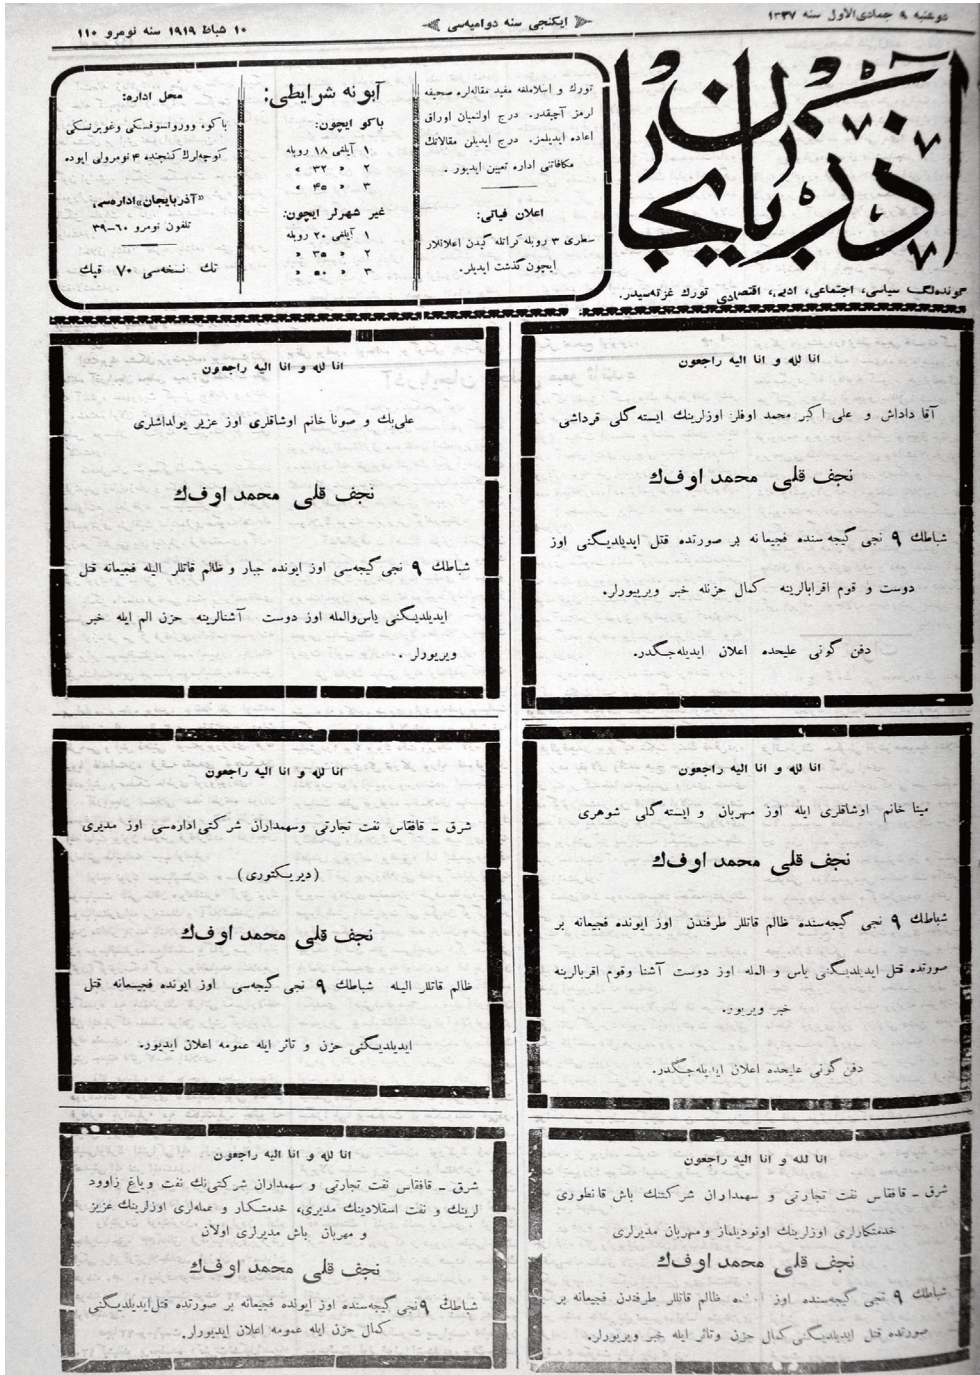 دوشنبه ۹ جمادی‌الاول سنه ۱۳۳۷
ایكنجی سنه دوامیه‌سی
۱۰ شباط ۱۹۱۹ سنه نومرو ۱۱۰
آذربایجان
گونده‌لك سیاسی، اجتماعی، ادبی، اقتصادی تورك غزته‌سیدر.
تورك و اسلاملغه مفید مقاله‌لره صحیفه
لرمز آچیقدر. درج اولنمیان اوراق
اعاده ایدیلمز. درج ایدیلن مقالاتك
مكافاتنی اداره تعیین ایدیور .
اعلان فیاتی:
سطری ۳ روبله كراتله گیدن اعلانلار
ایچون گذشت ایدیلر.
آبونه شرایطی:
باكو ایچون:
۱ آیلقی ۱۸ روبله
۲ » ۳۲ »
۳ » ۴۵ »
غیر شهرلر ایچون:
۱ آیلقی ۲۰ روبله
۲ » ۳۵ »
۳ » ۵۰ »
محل اداره:
باكو، ووروانسوفسكی وغوبرنسكی
كوچه‌لرك كنجنده ۴ نومرولی ایوده
«آذربایجان» اداره‌سی
تلفون نومرو ۶۰–۳۹
تك نسخه‌سی ۷۰ قپك
انا لله و انا الیه راجعون
آقا داداش و علی اكبر محمد اوفلر اوزلرینك ایسته گلی قرداشی
نجف قلی محمد اوف‌ك
شباطك ۹ نجی گیجه سنده فجیعانه بر صورتده قتل ایدیلدیگنی اوز
دوست و قوم اقربالرینه كمال حزنله خبر ویریورلر.
دفن گونی علیحده اعلان ایدیله‌جگدر.
انا لله و انا الیه راجعون
علی‌بك و صونا خانم اوشاقلری اوز عزیز یولداشلری
نجف قلی محمد اوف‌ك
شباطك ۹ نجی گیجه‌سی اوز ایونده جبار و ظالم قاتللر الیله فجیعانه قتل
ایدیلدیگنی یاس‌والمله اوز دوست آشنالرینه حزن الم ایله خبر
ویریورلر .
انا لله و انا الیه راجعون
مینا خانم اوشاقلری ایله اوز مهربان و ایسته گلی شوهری
نجف قلی محمد اوف‌ك
شباطك ۹ نجی گیجه‌سنده ظالم قاتللر طرفندن اوز ایونده فجیعانه بر
صورتده قتل ایدیلدیگنی یاس و المله اوز دوست آشنا وقوم اقربالرینه
خبر ویریور.
دفن گونی علیحده اعلان ایدیله‌جگدر.
انا لله و انا الیه راجعون
شرق ـ قافقاس نفت تجارتی وسهمداران شركتی‌اداره‌سی اوز مدیری
(دیریكتوری)
نجف قلی محمد اوف‌ك
ظالم قاتللر الیله شباطك ۹ نجی گیجه‌سی اوز ایونده فجیعانه قتل
ایدیلدیگنی حزن و تاثر ایله عمومه اعلان ایدیور.
انا لله و انا الیه راجعون
شرق ـ قافقاس نفت تجارتی و سهمداران شركتنك باش قانطوری
خدمتكارلری اوزلرینك اونودیلماز ومهربان مدیرلری
نجف قلی محمد اوف‌ك
شباطك ۹ نجی گیجه‌سنده اوز ظالم قاتللر طرفندن فجیعانه بر
صورتده قتل ایدیلدیگنی كمال حزن وتاثر ایله خبر ویریورلر.
انا لله و انا الیه راجعون
شرق ـ قافقاس نفت تجارتی و سهمداران شركتی‌نك نفت ویاغ زاوود
لرینك و نفت اسقلادینك مدیری، خدمتكار و عمله‌لری اوزلرینك عزیز
و مهربان باش مدیرلری اولان
نجف قلی محمد اوف‌ك
شباطك ۹نجی گیجه‌سنده اوز ایونده فجیعانه بر صورتده قتل‌ایدیلدیگنی
كمال حزن ایله عمومه اعلان ایدیورلر.